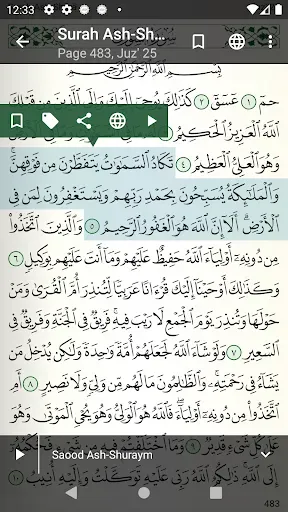 12:33
Surah Ash-Sh...
Page 483, Juz' 25
بِسْمِ ٱللَّهِ ٱلرَّحْمَٰنِ ٱلرَّحِيمِ
حمٓ ١ عٓسٓقٓ ٢ كَذَٰلِكَ يُوحِىٓ إِلَيْكَ وَإِلَى ٱلَّذِينَ مِن قَبْلِكَ
ٱللَّهُ ٱلْعَزِيزُ ٱلْحَكِيمُ
وَهُوَ ٱلْعَلِىُّ ٱلْعَظِيمُ ٤ تَكَادُ ٱلسَّمَٰوَٰتُ يَتَفَطَّرْنَ مِن فَوْقِهِنَّ ۚ
وَٱلْمَلَٰٓئِكَةُ يُسَبِّحُونَ بِحَمْدِ رَبِّهِمْ وَيَسْتَغْفِرُونَ لِمَن فِى
ٱلْأَرْضِ ۗ أَلَآ إِنَّ ٱللَّهَ هُوَ ٱلْغَفُورُ ٱلرَّحِيمُ ٥ وَٱلَّذِينَ ٱتَّخَذُوا۟
مِن دُونِهِۦٓ أَوْلِيَآءَ ٱللَّهُ حَفِيظٌ عَلَيْهِمْ وَمَآ أَنتَ عَلَيْهِم بِوَكِيلٍ
٦ وَكَذَٰلِكَ أَوْحَيْنَآ إِلَيْكَ قُرْءَانًا عَرَبِيًّا لِّتُنذِرَ أُمَّ ٱلْقُرَىٰ وَمَنْ
حَوْلَهَا وَتُنذِرَ يَوْمَ ٱلْجَمْعِ لَا رَيْبَ فِيهِ ۚ فَرِيقٌ فِى ٱلْجَنَّةِ وَفَرِيقٌ فِى
ٱلسَّعِيرِ ٧ وَلَوْ شَآءَ ٱللَّهُ لَجَعَلَهُمْ أُمَّةً وَٰحِدَةً وَلَٰكِن يُدْخِلُ مَن
يَشَآءُ فِى رَحْمَتِهِۦ ۚ وَٱلظَّٰلِمُونَ مَا لَهُم مِّن وَلِىٍّ وَلَا نَصِيرٍ ٨
أَمِ ٱتَّخَذُوا۟ مِن دُونِهِۦٓ أَوْلِيَآءَ ۖ فَٱللَّهُ هُوَ ٱلْوَلِىُّ وَهُوَ يُحْىِ ٱلْمَوْتَىٰ وَهُوَ
عَلَىٰ كُلِّ شَىْءٍ قَدِيرٌ ٩ وَمَا ٱخْتَلَفْتُمْ فِيهِ مِن شَىْءٍ
Saood Ash-Shuraym
إِلَى ٱللَّهِ ۚ ذَٰلِكُمُ ٱللَّهُ رَبِّى عَلَيْهِ تَوَكَّلْتُ وَإِلَيْهِ أُنِيبُ ١٠
483